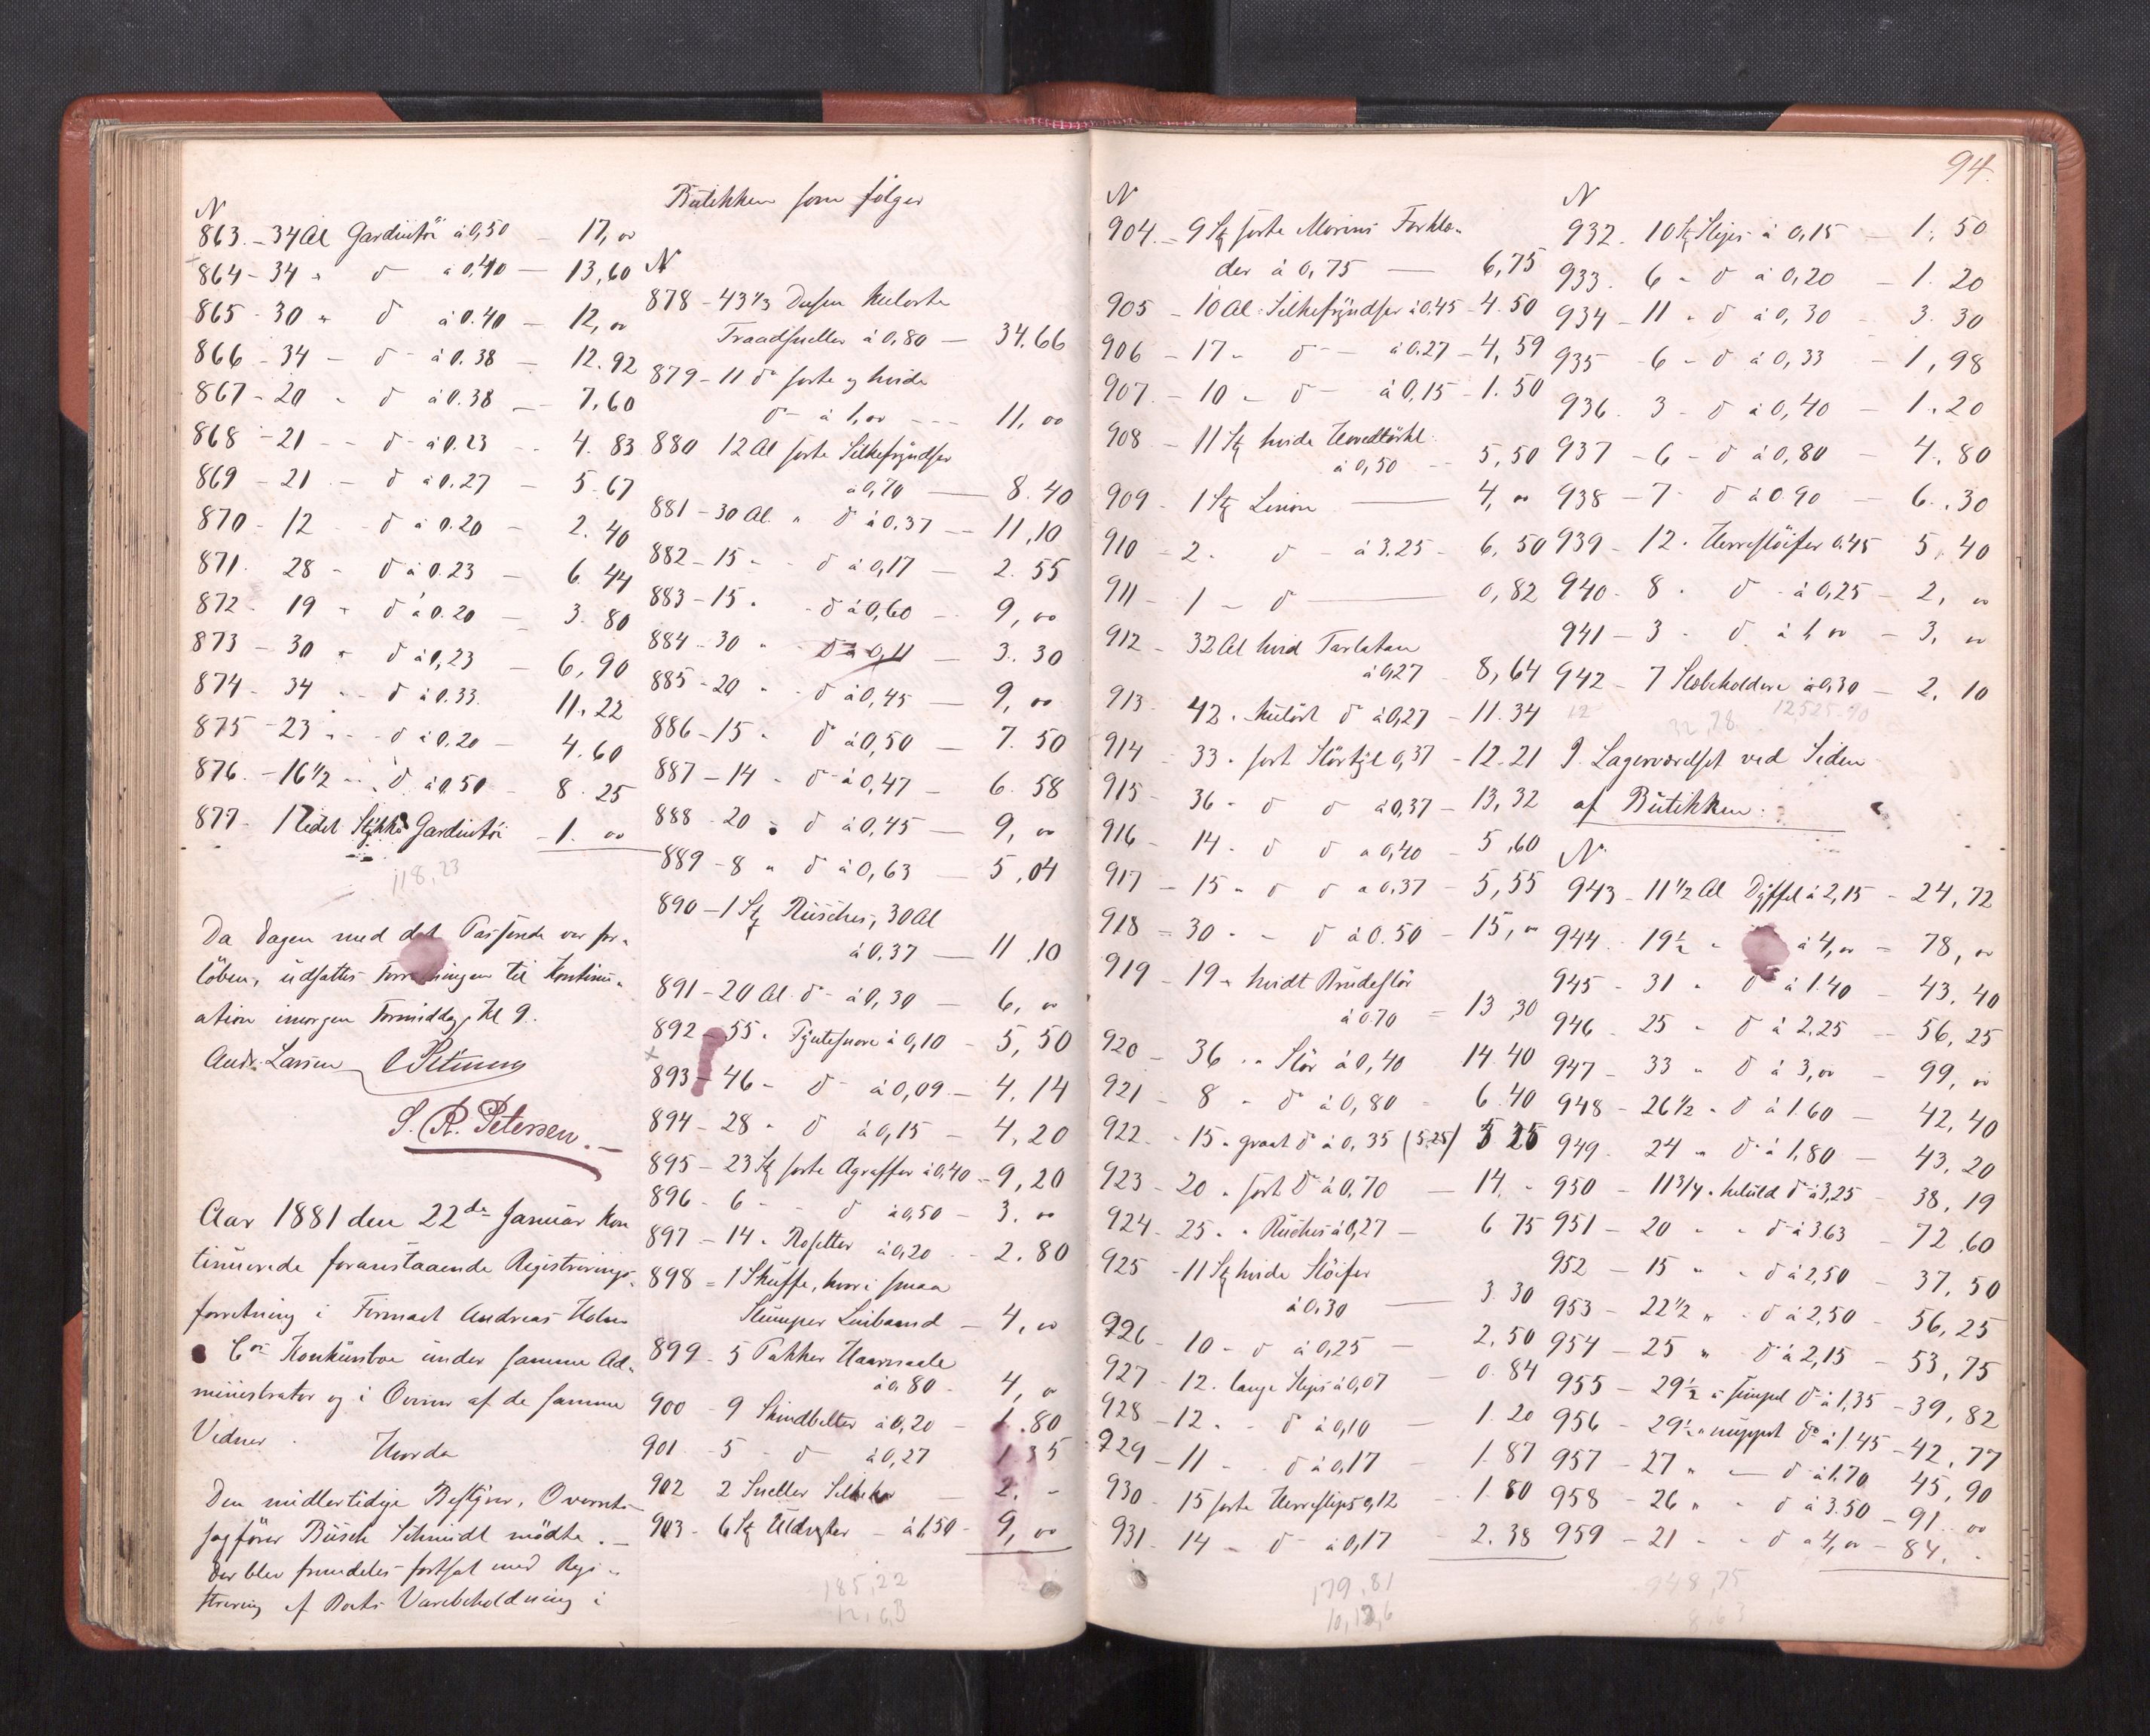 N
863. - 34 Al Gardintöi à 0,50 - 17, oo
864 - 34 " d à 0,40 - 13,60
865 - 30 " d à 0.40 - 12, oo
866 - 34 - d à 0.38 - 12.92
867 - 20 - d à 0.38 - 7.60
868 - 21 - d à 0.23 - 4.83
869 - 21 - d à 0.27 - 5.67
870 - 12 - d à 0.20 - 2.40
871. 28 - d à 0.23 - 6.44
872 - 19 - d à 0.20 - 3.80
873 - 30 " d à 0,23 - 6,90
874 - 34 - d à 0.33. 11.22
875 - 23 - d à 0.20 - 4.60
876. - 16 1/2 - d à 0.50 - 8.25
877 - 1 Stykke Gardintöi - 1. oo
118,23
Da Dagen med det Passerede var for-
löben, udsattes Forretningen til Kontinu-
ation imorgen Formiddag Kl 9.
Andr. Larsen
S. R. Petersen.
Aar 1881 den 22de Januar kon
tinuerede foranstaaende Registrerings-
forretning i Firmaet Andreas Holm
& Co Konkursbo under samme Ad-
ministrator og i Overvær af de samme
Vidner. Hvorda
Den midlertidige Bestyrer, Overrets-
sagförer Busch Schmidt mödte. -
Der blev fremdeles fortsat med Regi-
strering af Boets Varebeholdning i
Butikken som følger
N
878 - 43 1/3 Dusin kulörte
Traadsneller à 0,80 - 34.66
879 - 11 d sorte og hvide
d à 1,oo - 11, oo
880 12 Al sorte Silkefryndser
à 0,70 - 8.40
881 - 30 Al. " d à 0,37 - 11,10
882 - 15 - d à 0,17 - 2.55
883 - 15 " d à 0,60 - 9, oo
884 - 30 " d à 0,11 - 3.30
885 - 20 " d à 0,45 - 9, oo
886 - 15 " d à 0,50 - 7.50
887 - 14 - d à 0,47 - 6.58
888 - 20 " d à 0,45 - 9, oo
889 - 8 " d à 0,63 - 5,04
890 - 1 St Rüscher, 30 Al
à 0.37 - 11,10
891 - 20 Al d à 0,30 - 6, oo
892 - 55 " à 0,10 - 5,50
893 - 46 - d à 0,09 - 4,14
894 - 28 - d à 0,15 - 4,20
895 - 23 St sorte Agraffer à 0,40 - 9,20
896 - 6 - d à 0,50 - 3. oo
897 - 14 " Rosetter à 0,20 - 2.80
898 = 1 Skuffe, hvori smaa
Stumper Linbaand - 4, oo
899 - 5 Pakker Haarnaale
à 0,80 - 4, o
900 - 9 Skindbelter à 0,20 - 1.80
901 - 5 - d à 0,27 1 35
902 2 Sneller - 2. -
903 - 6 St Uldvester - à 1.50 - 9, oo
185,22
94.
N
904. - 9 St sorte Merinos Forklæ-
der à 0,75 - 6,75
905 - 10 Al: Silkefryndser à 0.45 - 4.50
906 - 17 - d - à 0.27 - 4,59
907. - 10 - d - à 0,15 - 1.50
908 - 11 St hvide Hovedtörkl:
à 0,50 - 5,50
909 - 1 St Linon - 4, oo
910 - 2. d - à 3.25 - 6,50
911 - 1 - d - 0,82
912 - 32 Al hvid Tarlatan
à 0,27 - 8,64
913. 42 . kulört d à 0,27 - 11.34
914 - 33 . sort 0,37 - 12.21
915 - 36 - d d à 0,37 - 13,32
916 - 14 - d d à 0,40 - 5,60
917 - 15 - d d à 0.37 - 5,55
918 - 30 - - d à 0.50 - 15, oo
919 - 19 " hvidt Brudeslör
à 0.70 = 13,30
920 - 36 . Slör à 0,40 14.40
921 - 8 - d à 0,80 - 6.40
922 - 15 - graat d à 0,35 (5.25) 5 25
923 - 20 . sort d à 0.70 - 14, -
924 - 25 . " Rüscher à 0,27 - 6 75
925 - 11 St hvide Slöifer
à 0,30 - 3.30
926 - 10 - d à 0,25 - 2.50
927 - 12. lange Slips à 0,07 - 0.84
928 - 12 - d à 0,10 - 1.20
929 - 11 - d à 0,17 - 1.87
930 - 15 sorte Herreslips 0,12 - 1.80
931 - 14 - d à 0,17 - 2.38
179,81
N
932 . 10 St Slips à 0,15 - 1.50
933. 6 - d à 0,20 - 1.20
934 - 11 - d à 0,30 - 3.30
935 - 6 - d à 0,33 - 1,98
936. 3 - d à 0,40 - 1.20
937 - 6 - d à 0,80 - 4.80
938 - 7 - d à 0.90 - 6.30
939 - 12 . Herreslöifer 0.45 5,40
940 - 8 . d à 0,25 - 2, oo
941 - 3 - d à 1, oo - 3, oo
942 - 7 Slæbeholdere à 0,30 - 2.10
32,78
I Lagerværelset ved Siden
af Butikken.
N
943 - 11 1/2 Al Dyffel à 2,15 - 24,72
944 - 19 1/2 - à 4, oo = 78, oo
945 - 31 " d à 1.40 - 43,40
946 - 25 - d à 2.25 - 56,25
947 - 33 " d à 3,oo - 99, oo
948 - 26 1/2 " d à 1.60 - 42,40
949. 24 " d à 1.80 - 43,20
950 - 11 3/4 " d à 3,25 - 38,19
951 - 20 - - d à 3.63 - 72,60
952 - 15 " - d à 2,50 - 37,50
953 - 22 1/2 " - d à 2,50 - 56,25
954 - 25 " d à 2,15 - 53,75
955 - 29 1/2 " d à 1,35 - 39,82
956 - 29 1/2 " nuppet d à 1.45 - 42,77
957 - 27 " - d à 1.70 45,90
958 - 26 " " d à 3.50 - 91. oo
959 - 21 - - d à 4, oo - 84. -
948,75